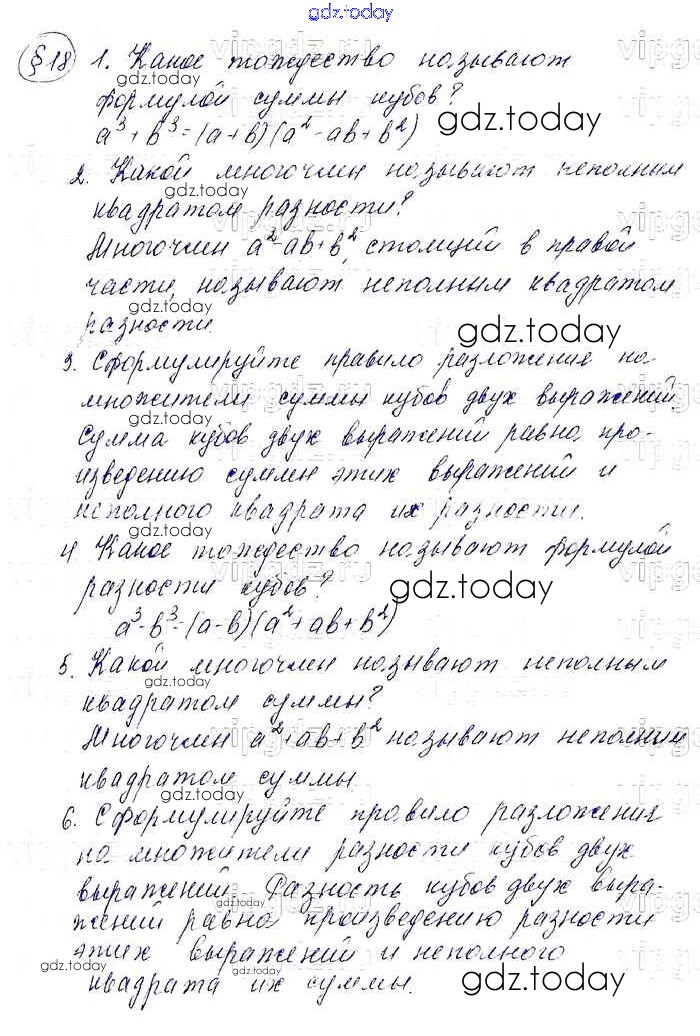 gdz.today
§18 1. Какое тождество называют
формулой суммы кубов?
a³ + b³ = (a+b)(a² - ab + b²)
2. Какой многочлен называют неполным
квадратом разности?
Многочлен a² - ab + b², стоящий в правой
части, называют неполным квадратом
разности.
3. Сформулируйте правило разложения на
множители суммы кубов двух выражений
Сумма кубов двух выражений равна про-
изведению суммы этих выражений и
неполного квадрата их разности.
4. Какое тождество называют формулой
разности кубов?
a³ - b³ = (a-b)(a² + ab + b²)
5. Какой многочлен называют неполным
квадратом суммы?
Многочлен a² + ab + b² называют неполным
квадратом суммы.
6. Сформулируйте правило разложения
на множители разности кубов двух
выражений. Разность кубов двух выра-
жений равна произведению разности
этих выражений и неполного
квадрата их суммы.
gdz.today